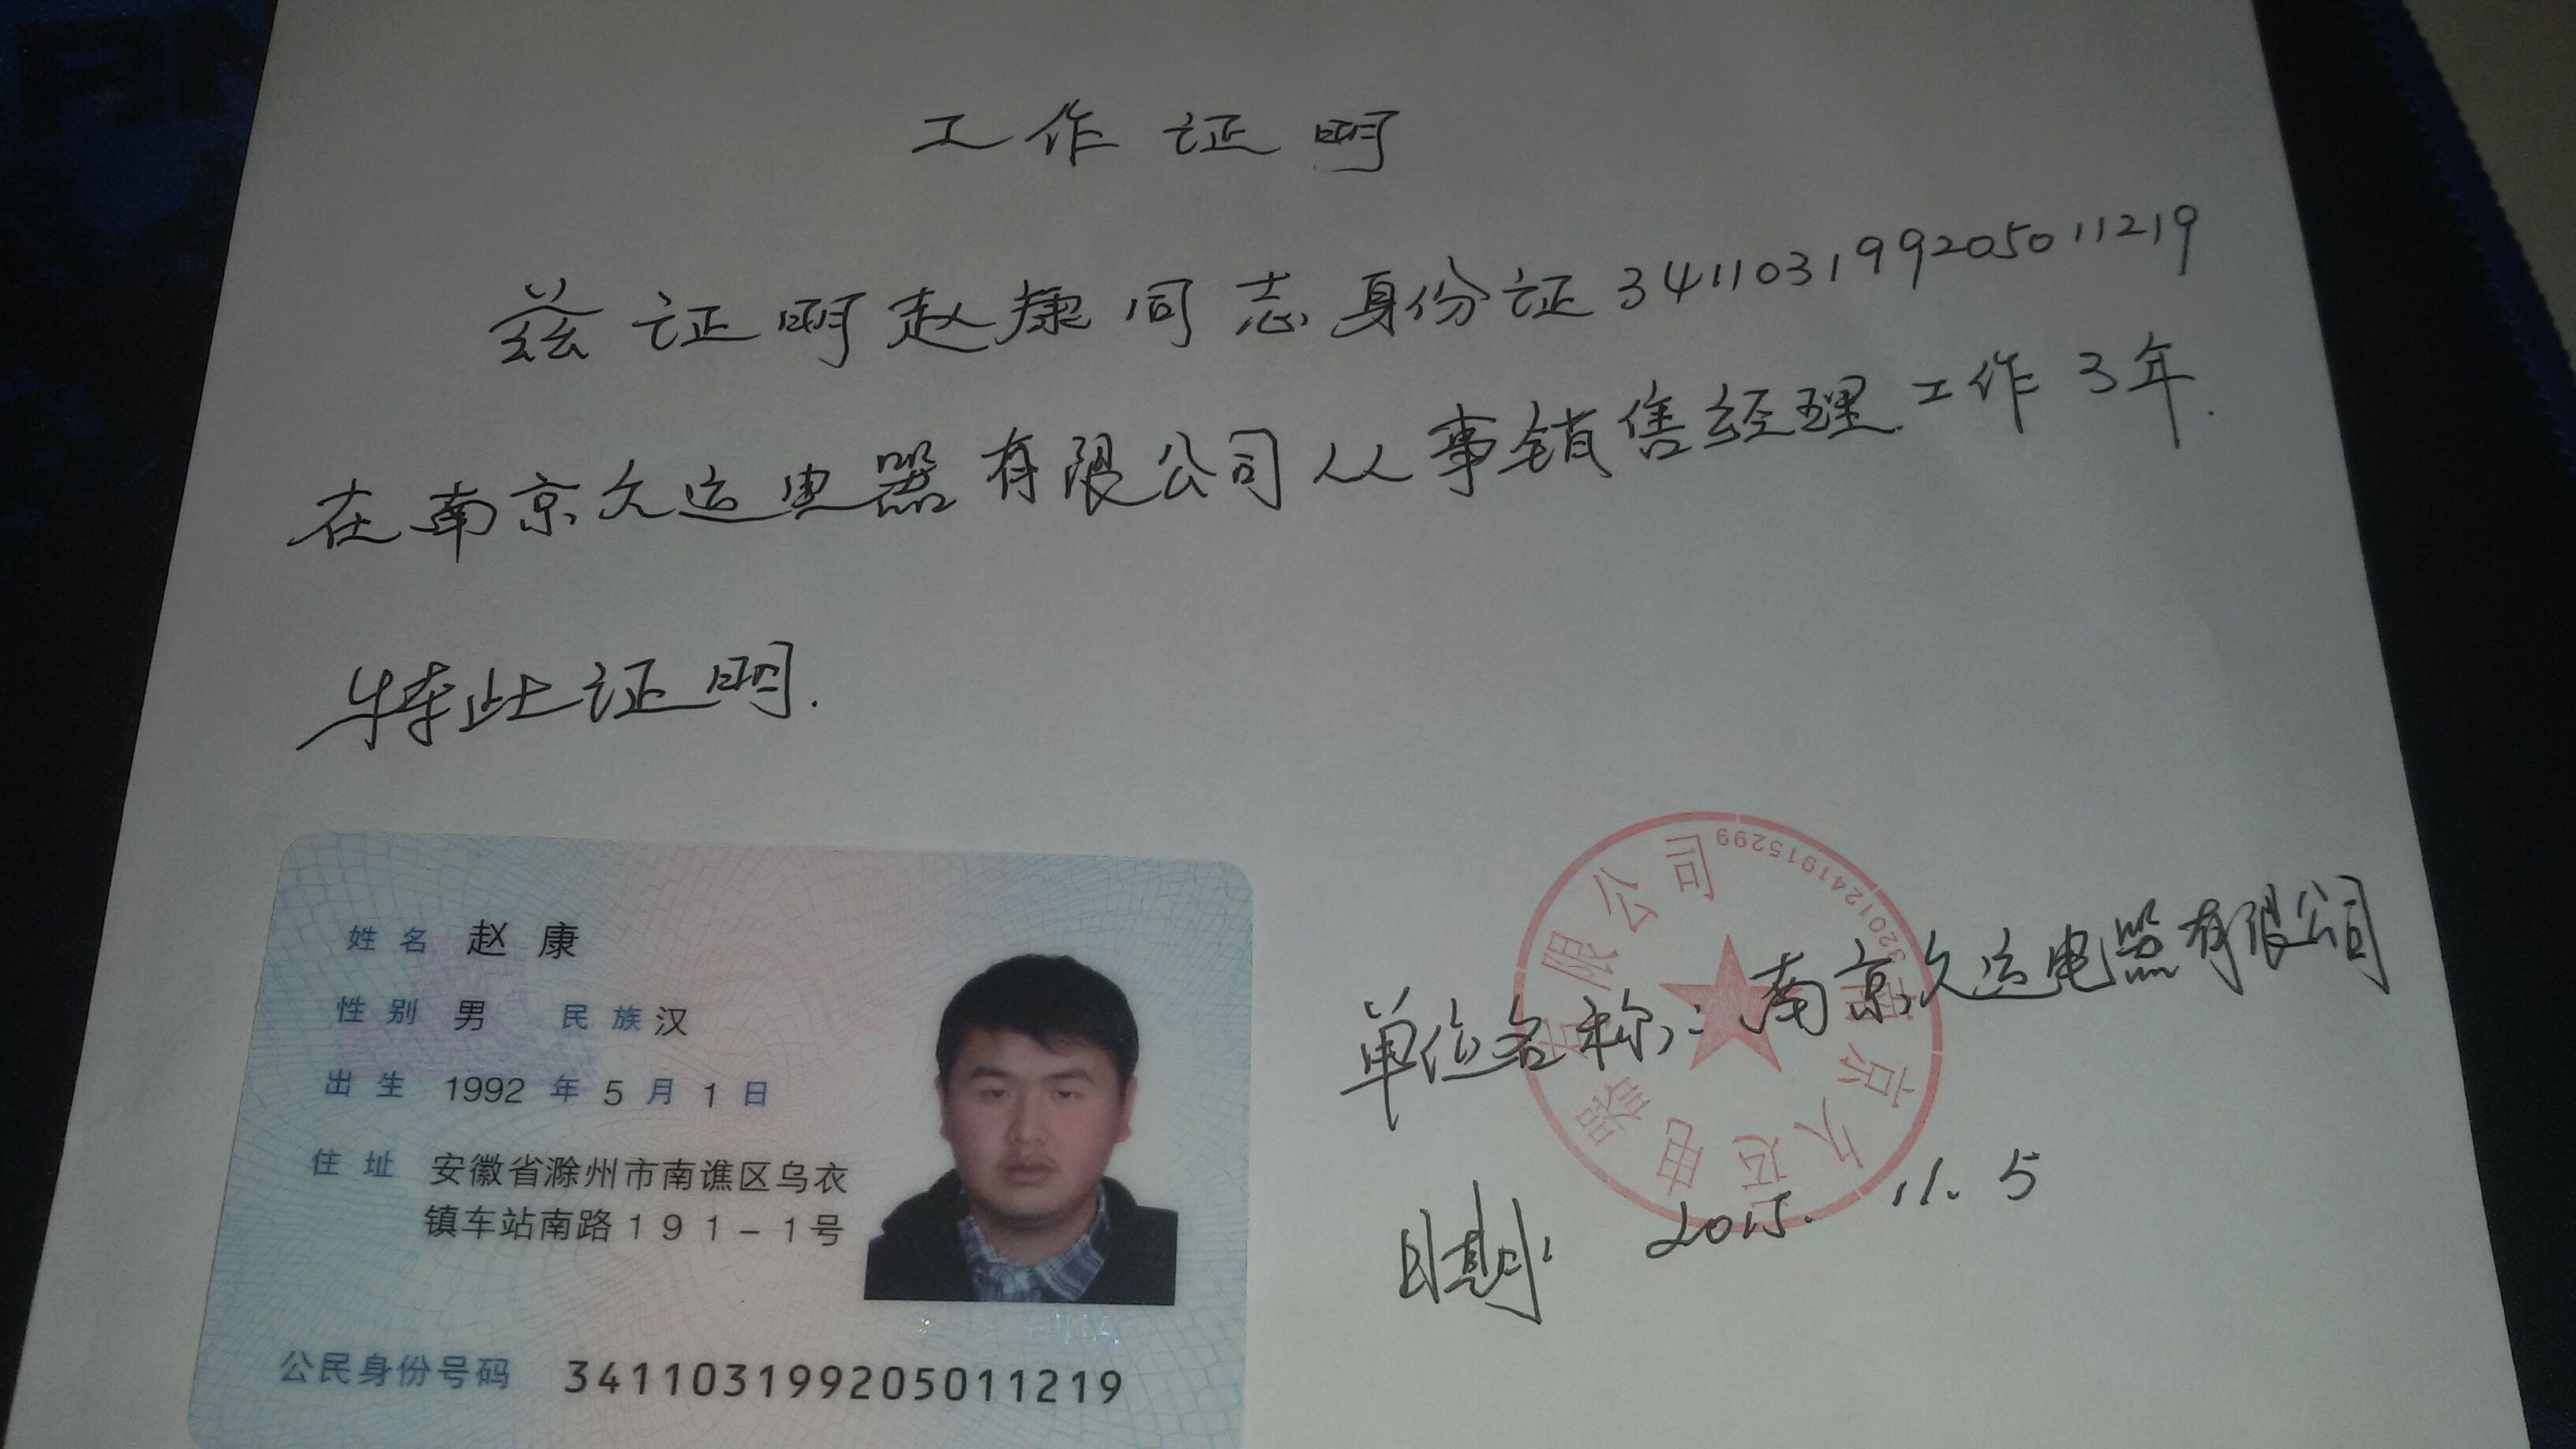 工作证明
兹证明赵康同志身份证341103199205011219
在南京久运电器有限公司从事销售经理工作3年.
特此证明.
姓名 赵康
性别 男 民族 汉
出生 1992 年 5 月 1 日
住址 安徽省滁州市南谯区乌衣
镇车站南路191-1号
公民身份号码 341103199205011219
单位名称:南京久运电器有限公司
日期: 2015.11.5
南京久运电器有限公司
3201241915299